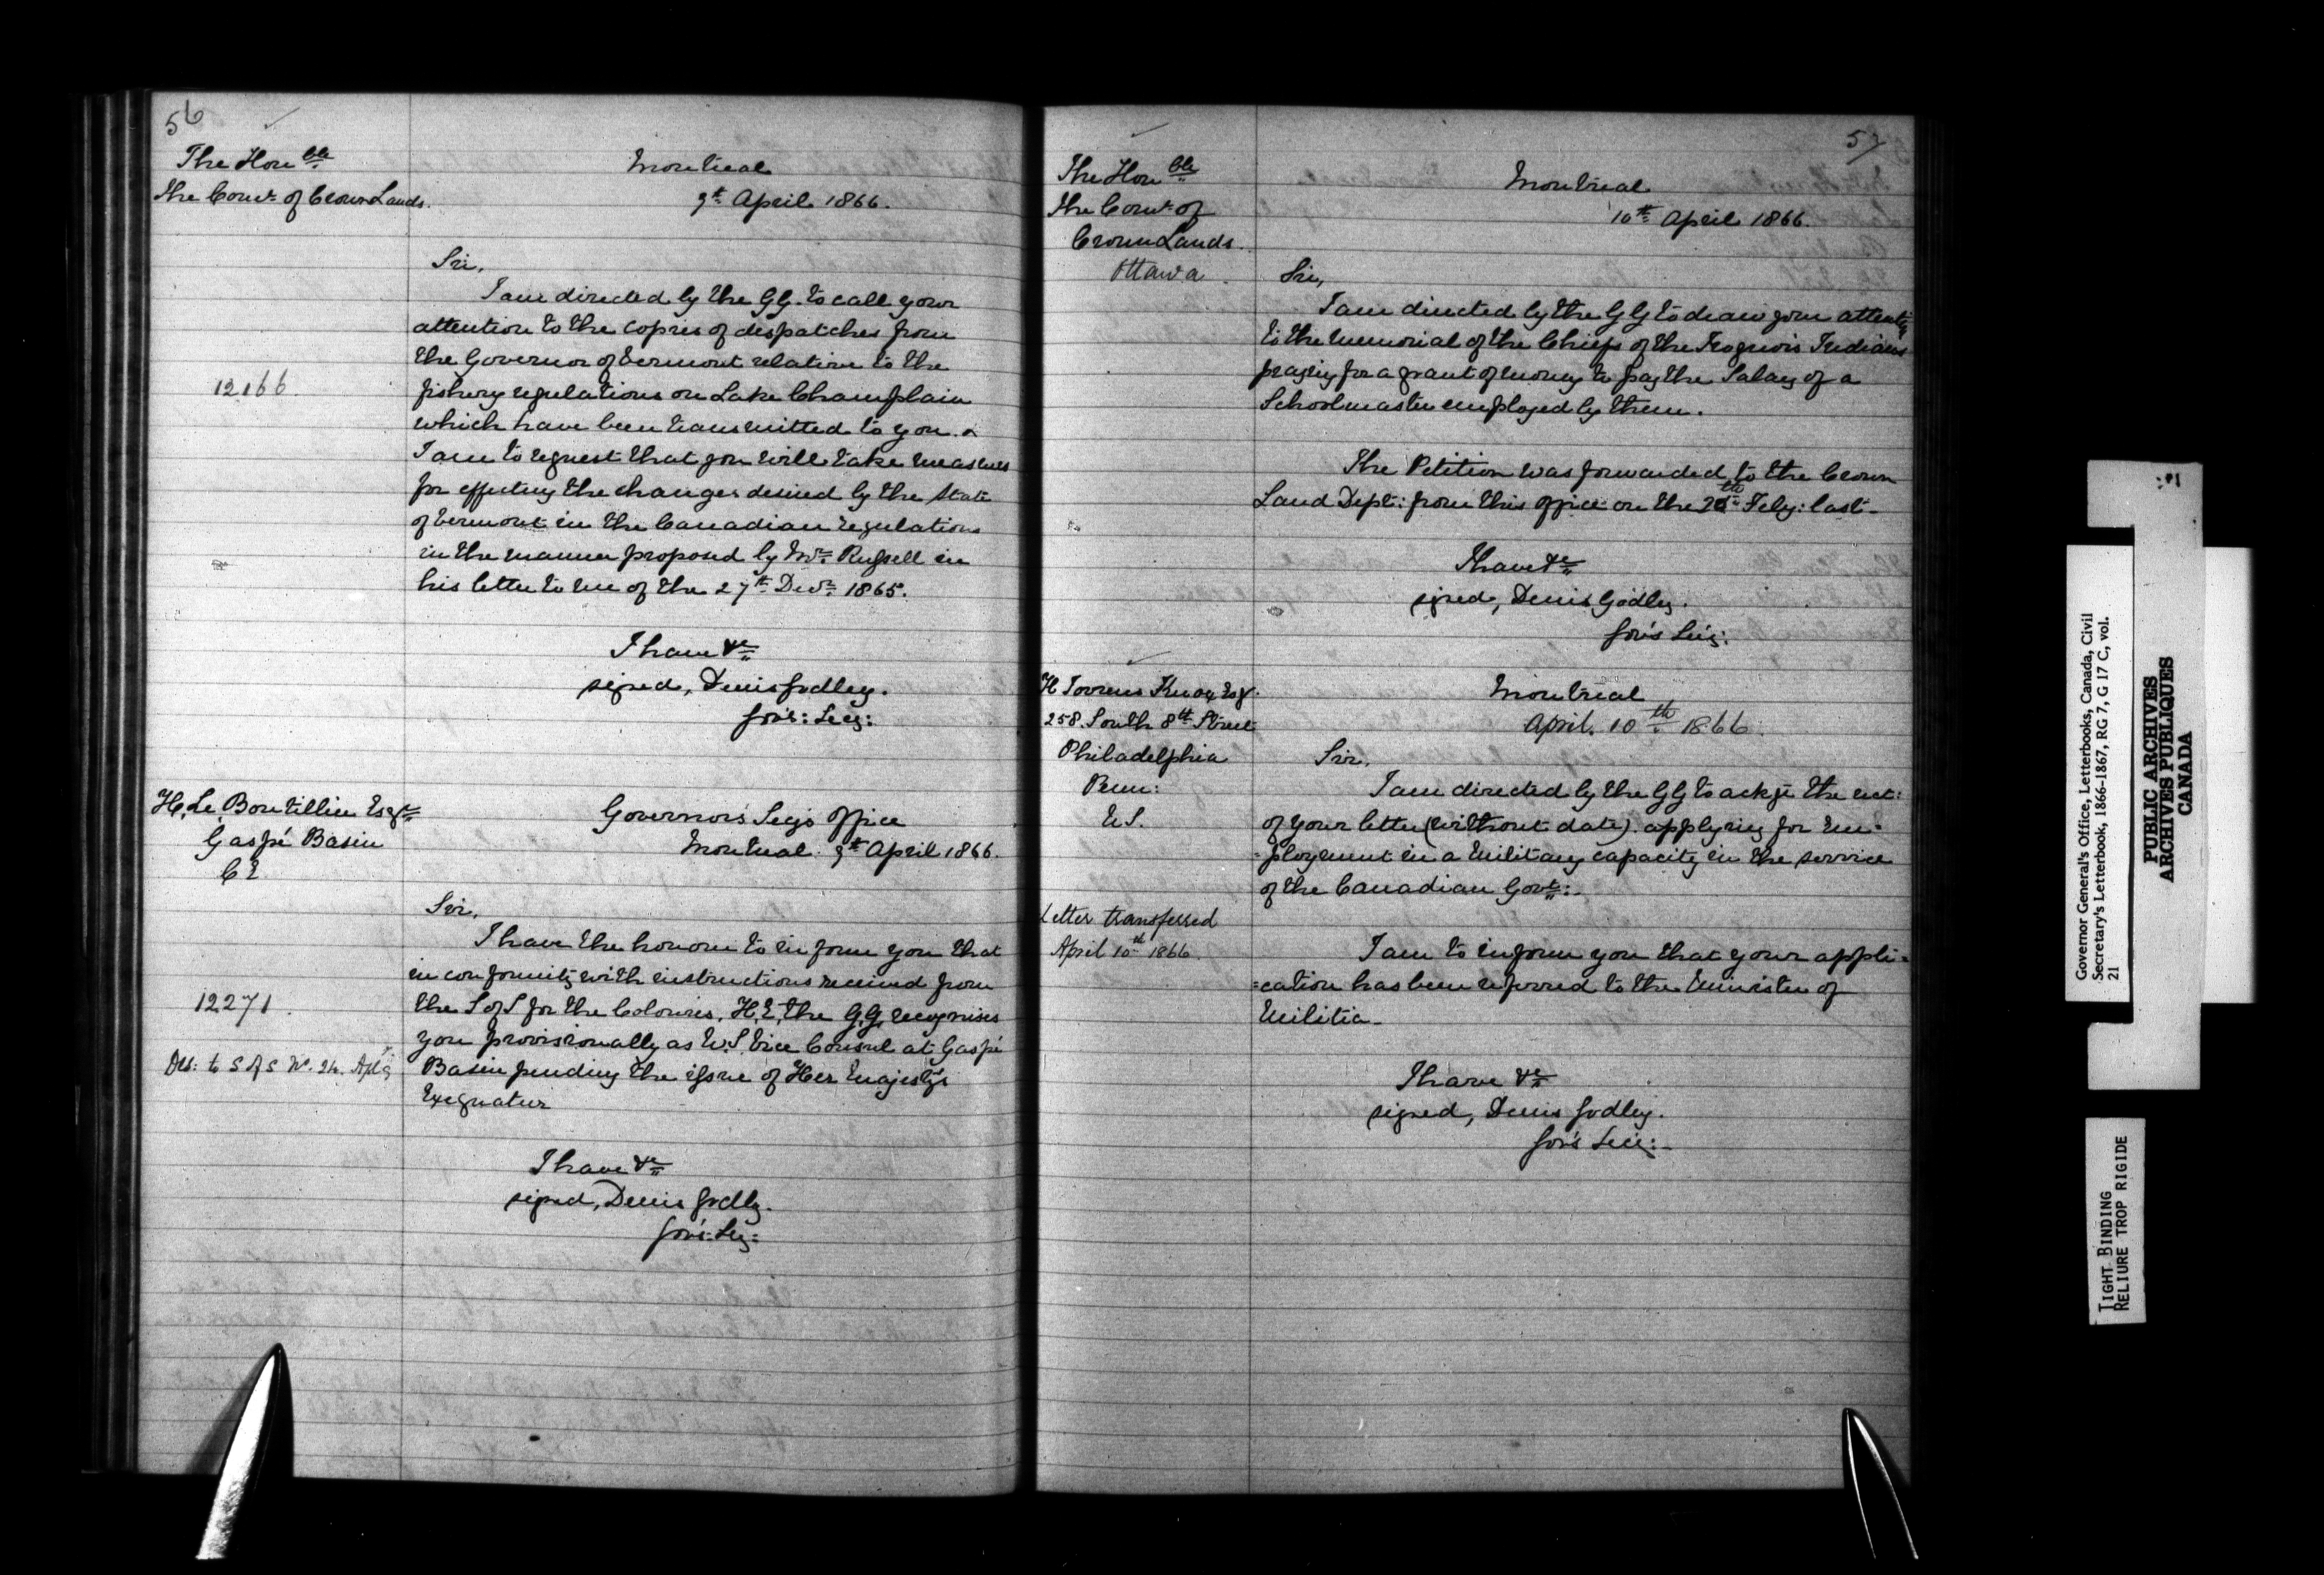 56
The Honble
the Comr. of Crown Lands.
Montreal
9th April 1866.
Sir,
I am directed by the GG. to call your
attention to the copies of despatches from
the Governor of Vermont relative to the
12166.
fishery regulations on Lake Champlain
which have been transmitted to you. &
I am to request that you will take measures
for effecting the changes desired by the State
of Vermont in the Canadian regulations
in the manner proposed by Mr. Russell in
his letter to me of the 27th Decr. 1865.
I have &c
signed, Denis Godley.
Gov's: Secy:
H. Le Boutillier Esqre
Gaspé Basin
CE
Governor's Secy's Office
Montreal 9th April 1866.
Sir,
I have the honour to inform you that
in conformity with instructions received from
12271.
the S of S for the Colonies, H.E. the G.G. recognises
you provisionally as U.S. Vice Consul at Gaspé
Des: to S of S No. 24. Apl 9
Basin pending the issue of Her Majesty's
Exequatur
I have &c
signed, Denis Godley.
Gov's: Secy:
57
The Honble
the Comr. of
Crown Lands.
Ottawa
Montreal
10th April 1866.
Sir,
I am directed by the GG to draw your attention
to the memorial of the Chiefs of the Iroquois Indians
praying for a grant of money to pay the Salary of a
Schoolmaster employed by them.
The Petition was forwarded to the Crown
Land Dept: from this office on the 20th Feby: last.
I have &c
signed, Denis Godley.
Gov's Secy:
H Torrens Knox Esqr.
258. South 8th Street
Philadelphia
Penn:
U.S.
Montreal
April. 10th 1866.
Sir,
I am directed by the GG to ackge the rect:
of your letter (without date). applying for em=
=ployment in a military capacity in the service
of the Canadian Govt:.
Letter transferred
April 10th 1866.
I am to inform you that your appli=
=cation has been referred to the Minister of
Militia.
I have &c
signed, Denis Godley.
Gov's Secy:
Governor General's Office, Letterbooks, Canada, Civil
Secretary's Letterbook, 1866-1867, RG 7, G 17 C, vol.
21
PUBLIC ARCHIVES
ARCHIVES PUBLIQUES
CANADA
TIGHT BINDING
RELIURE TROP RIGIDE